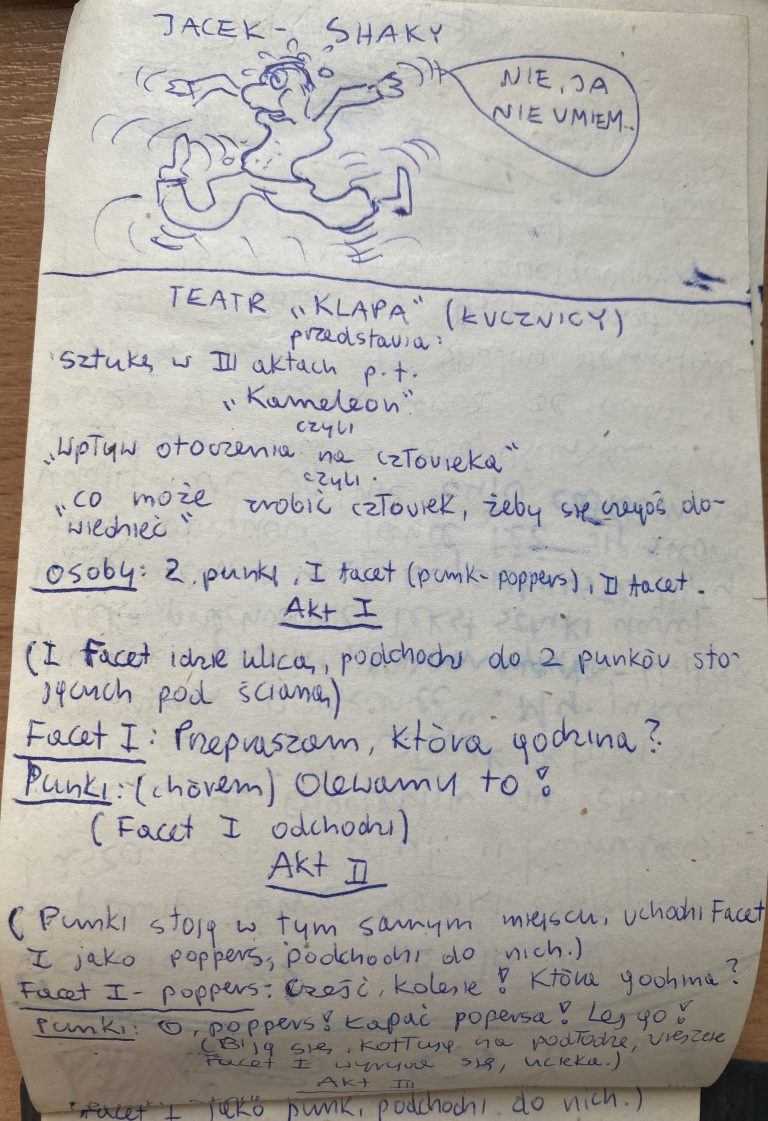 JACEK - SHAKY
NIE, JA
NIE UMIEM..
TEATR „KLAPA" (KUCZNICY)
przedstawia:
sztukę w III aktach p.t.
„Kameleon"
czyli
„Wpływ otoczenia na człowieka"
czyli
„co może zrobić człowiek, żeby się czegoś do-
wiedzieć"
Osoby: 2 punki, I facet (punk-poppers), II facet.
Akt I
(I Facet idzie ulicą, podchodzi do 2 punków sto-
jących pod ścianą)
Facet I: Przepraszam, która godzina?
Punki: (chórem) Olewamy to!
(Facet I odchodzi)
Akt II
(Punki stoją w tym samym miejscu, wchodzi Facet
I jako poppers, podchodzi do nich.)
Facet I - poppers: Cześć, kolesie! Która godzina?
Punki: O, poppers! Łapać popersa! Lej go!
(Biją się, kotłują na podłodze, wreszcie
Facet I wyrywa się, ucieka.)
Akt III
Facet I jako punk, podchodzi do nich.)